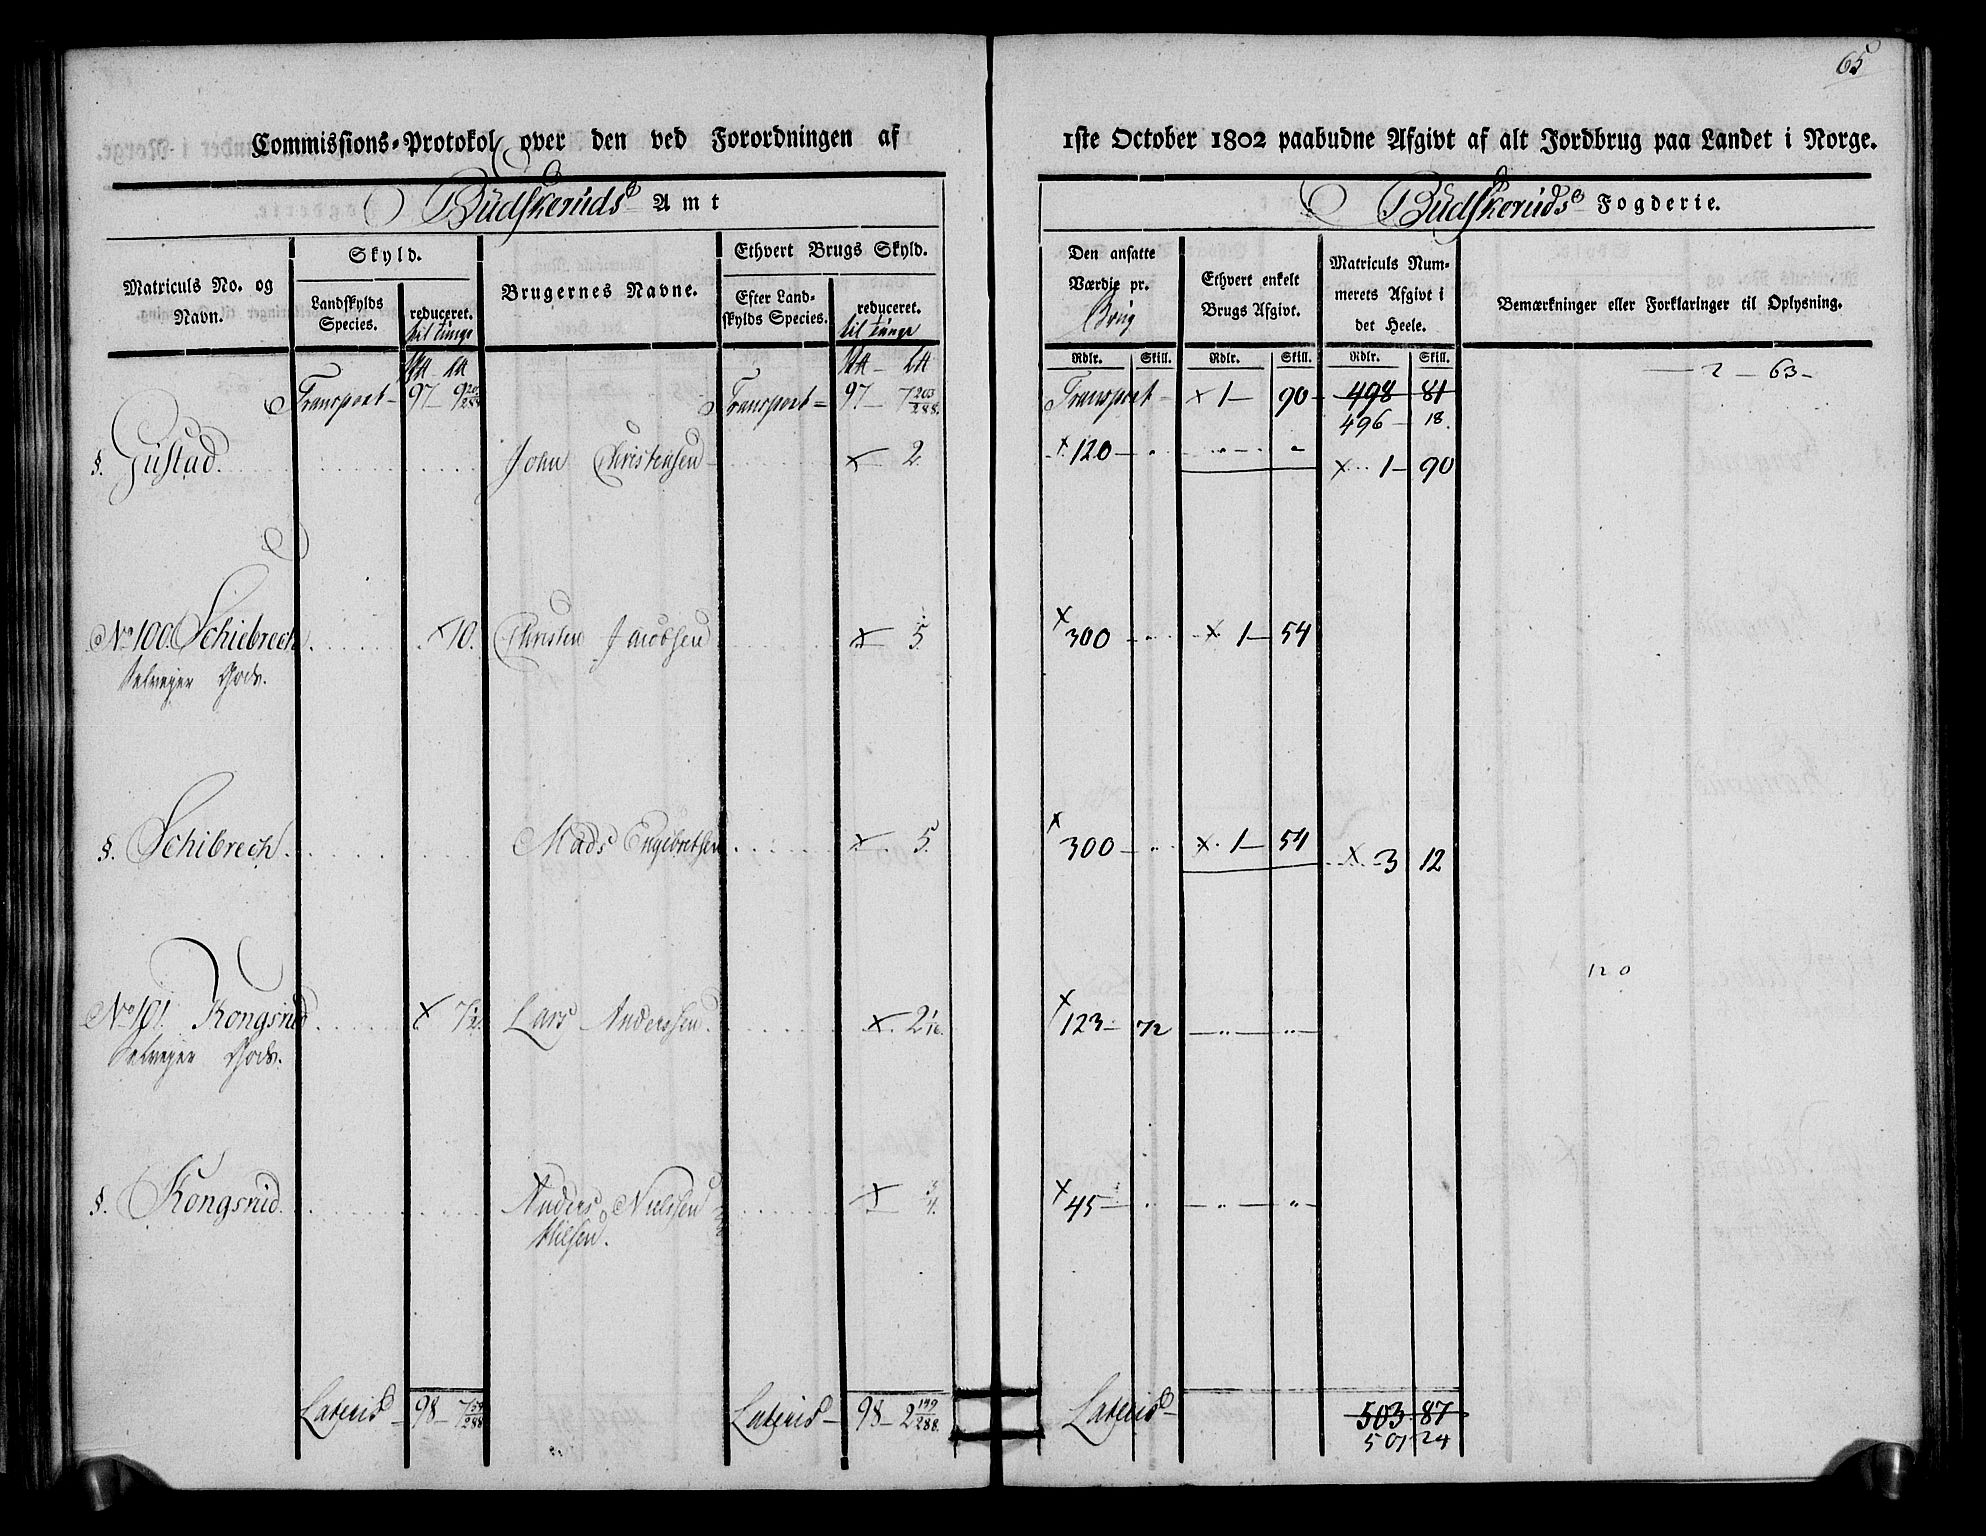 65
Commissions-Protokol over den ved Forordningen af 1ste October 1802 paabudne Afgivt af alt Jordbrug paa Landet i Norge.
Budskeruds Amt
Budskeruds Fogderie.
Matriculs No. og Navn.
Skyld.
Landskylds Species.
reduceret.
til tunge
Brugernes Navne.
Ethvert Brugs Skyld.
Efter Landskylds Species.
reduceret.
til tunge
Den ansatte Værdie pr. Brug
Ethvert enkelt Brugs Afgivt.
Matriculs Nummerets Afgivt i det Heele.
Bemærkninger eller Forklaringer til Oplysning.
Rdlr. Skill. Rdlr. Skill. Rdlr. Skill.
2 - 63 -
Transport - 97 - Transport - 97 - 7 203/288. Transport - x 1 - 90 - 498 81
496 - 18.
§. Gustad. John Christensen x 2. x 120 - x 1 - 90
No 100. Schiebrech x 10. Christen Jacobsen x 5. x 300 x 1 - 54
Selveyer Gods.
§. Schibrech. Mads Engebretsen x 5. x 300 - x 1 - 54 x 3 12
120
No 101. Kongsrud x 7 1/2. Lars Anderssen. x 2 1/16. x 123 - 72
Selveyer Gods.
§. Kongsrud. Anders Nielssen x 3/4. x 45 -
Lateris - 98 - 7 59/288 Lateris - 98 - 2 179/288. Lateris - 503 - 87
501 24